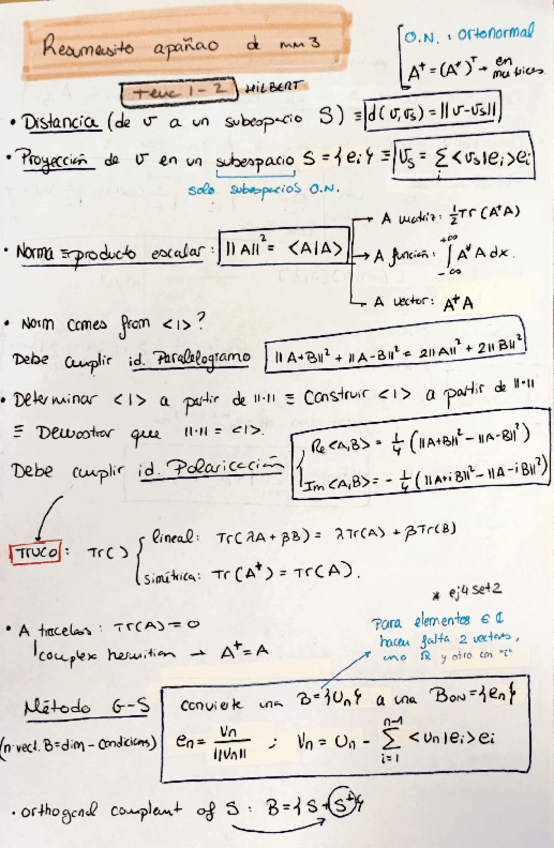 Resumensito apañao de mm3
O.N. : ortonormal
A⁺ = (A*)ᵀ → en matrices
Tema 1-2 HILBERT
• Distancia (de v a un subespacio S) ≡ d(v,vs) = ||v-vs||
• Proyección de v en un subespacio S = {ei} ≡ vs = Σi <vs|ei>ei
solo subespacios O.N.
• Norma ≡ producto escalar: ||A||² = <A|A>
→ A matriz: ½Tr(A⁺A)
→ A función: ∫-∞+∞ A*A dx.
→ A vector: A⁺A
• Norm comes from <|>?
Debe cumplir id. Paralelogramo ||A+B||² + ||A-B||² = 2||A||² + 2||B||²
• Determinar <|> a partir de ||·|| ≡ Construir <|> a partir de ||·||
≡ Demostrar que ||·|| = <|>.
Debe cumplir id. Polaricación
Re<A,B> = ¼ (||A+B||² - ||A-B||²)
Im<A,B> = -¼ (||A+iB||² - ||A-iB||²)
TRUCO: Tr()
lineal: Tr(λA + βB) = λTr(A) + βTr(B)
simétrica: Tr(A⁺) = Tr(A).
* ej4 set2
• A traceless: Tr(A) = 0
complex hermitian → A⁺ = A
Para elementos ∈ ℂ
hacen falta 2 vectores,
uno ℝ y otro con "i"
Método G-S
(nº vect. B = dim - condicions)
Convierte una B = {Un} a una BON = {en}
en = Vn/||Vn|| ; Vn = Un - Σi=1n-1 <Un|ei>ei
• orthogonal complement of S : B = {S + S⊥}